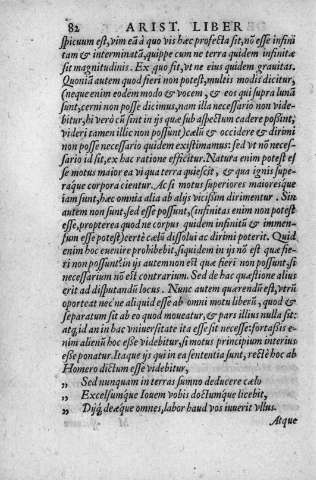 82 ARIST. LIBER
spicuum est, vim eā à quo vis hæc profecta sit, nō esse infini
tam & interminatā, quippe cum ne terra quidem infinitæ
sit magnitudinis. Ex quo fit, vt ne eius quidem grauitas.
Quoniā autem quod fieri non potest, multis modis dicitur,
(neque enim eodem modo & vocem, & eos qui supra lunā
sunt, cerni non posse dicimus, nam illa necessario non vide-
bitur, hi verò cū sint in ijs quæ sub aspectum cadere possint,
videri tamen illic non possunt) cælū & occidere & dirimi
non posse necessario quidem existimamus: sed vt nō neces-
sario id sit, ex hac ratione efficitur. Natura enim potest es
se motus maior ea vi qua terra quiescit, & qua ignis supe-
raque corpora cientur. Ac si motus superiores maioresque
iam sunt, hæc omnia alia ab alijs vicissim dirimentur. Sin
autem non sunt, sed esse possunt, (infinitas enim non potest
esse, propterea quod ne corpus quidem infinitū & immen-
sum esse potest) certè cælū dissolui ac dirimi poterit. Quid
enim hoc euenire prohibebit, siquidem in ijs nō est quæ fie-
ri non possunt? in ijs autem non est quæ fieri non possunt, si
necessarium nō est contrarium. Sed de hac quæstione alius
erit ad disputandū locus. Nunc autem quærendū est, vtrū
oporteat necne aliquid esse ab omni motu liberū, quod &
separatum sit ab eo quod moueatur, & pars illius nulla sit:
atq́; id an in hac vniuersitate ita esse sit necesse: fortaßis e-
nim alienū hoc esse videbitur, si motus principium interius
esse ponatur. Itaque ijs qui in ea sententia sunt, rectè hoc ab
Homero dictum esse videbitur,
„ Sed nunquam in terras summo deducere cælo
„ Excelsumque Iouem vobis doctumque licebit,
„ Dijq́; deæque omnes, labor haud vos iuuerit vllus.
Atque